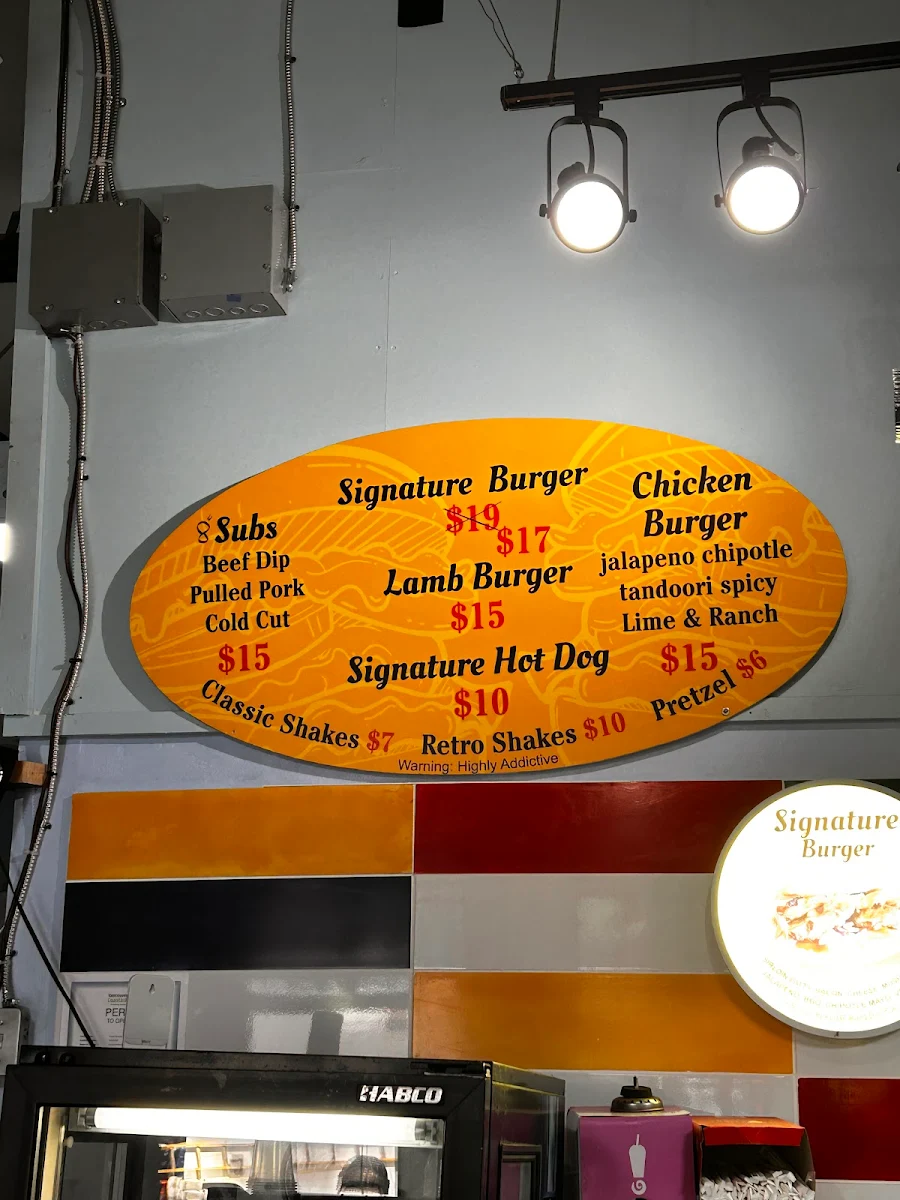 Signature Burger
$19
$17
Lamb Burger
$15
Signature Hot Dog
$10
8" Subs
Beef Dip
Pulled Pork
Cold Cut
$15
Chicken
Burger
jalapeno chipotle
tandoori spicy
Lime & Ranch
$15
Classic Shakes $7
Retro Shakes $10
Pretzel $6
Warning: Highly Addictive
Signature
Burger
HABCO